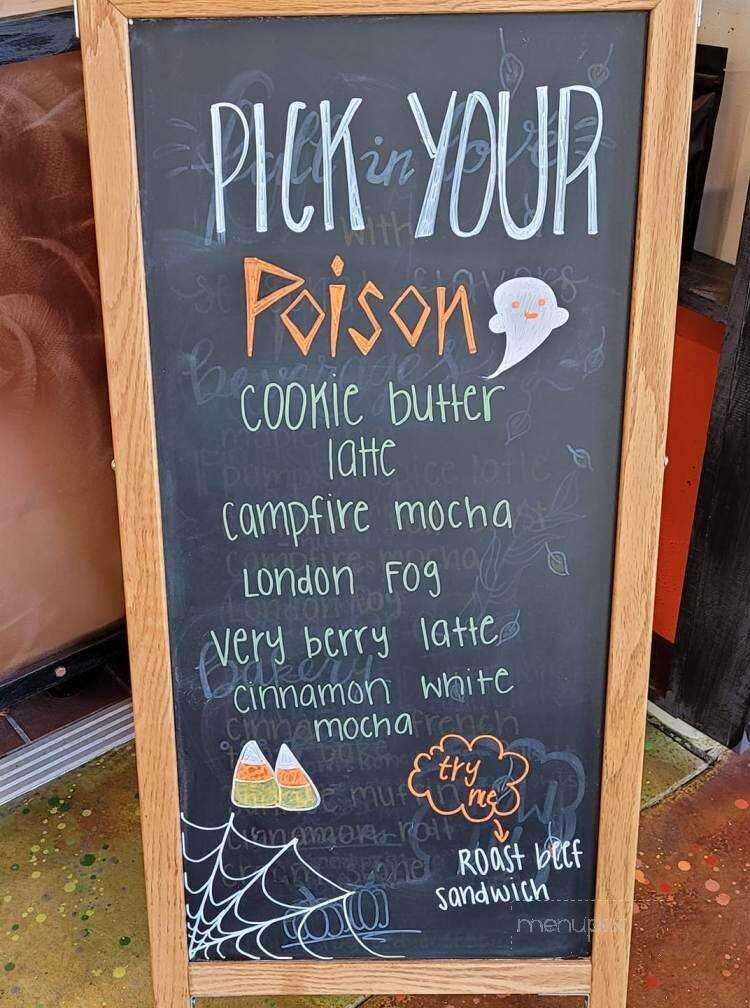 PICK YOUR
Poison
COOKie butter
latte
campfire mocha
LONDON FOg
Very berry latte
cinnamon white
mocha
try
me
ROast beef
sandwich
menupix